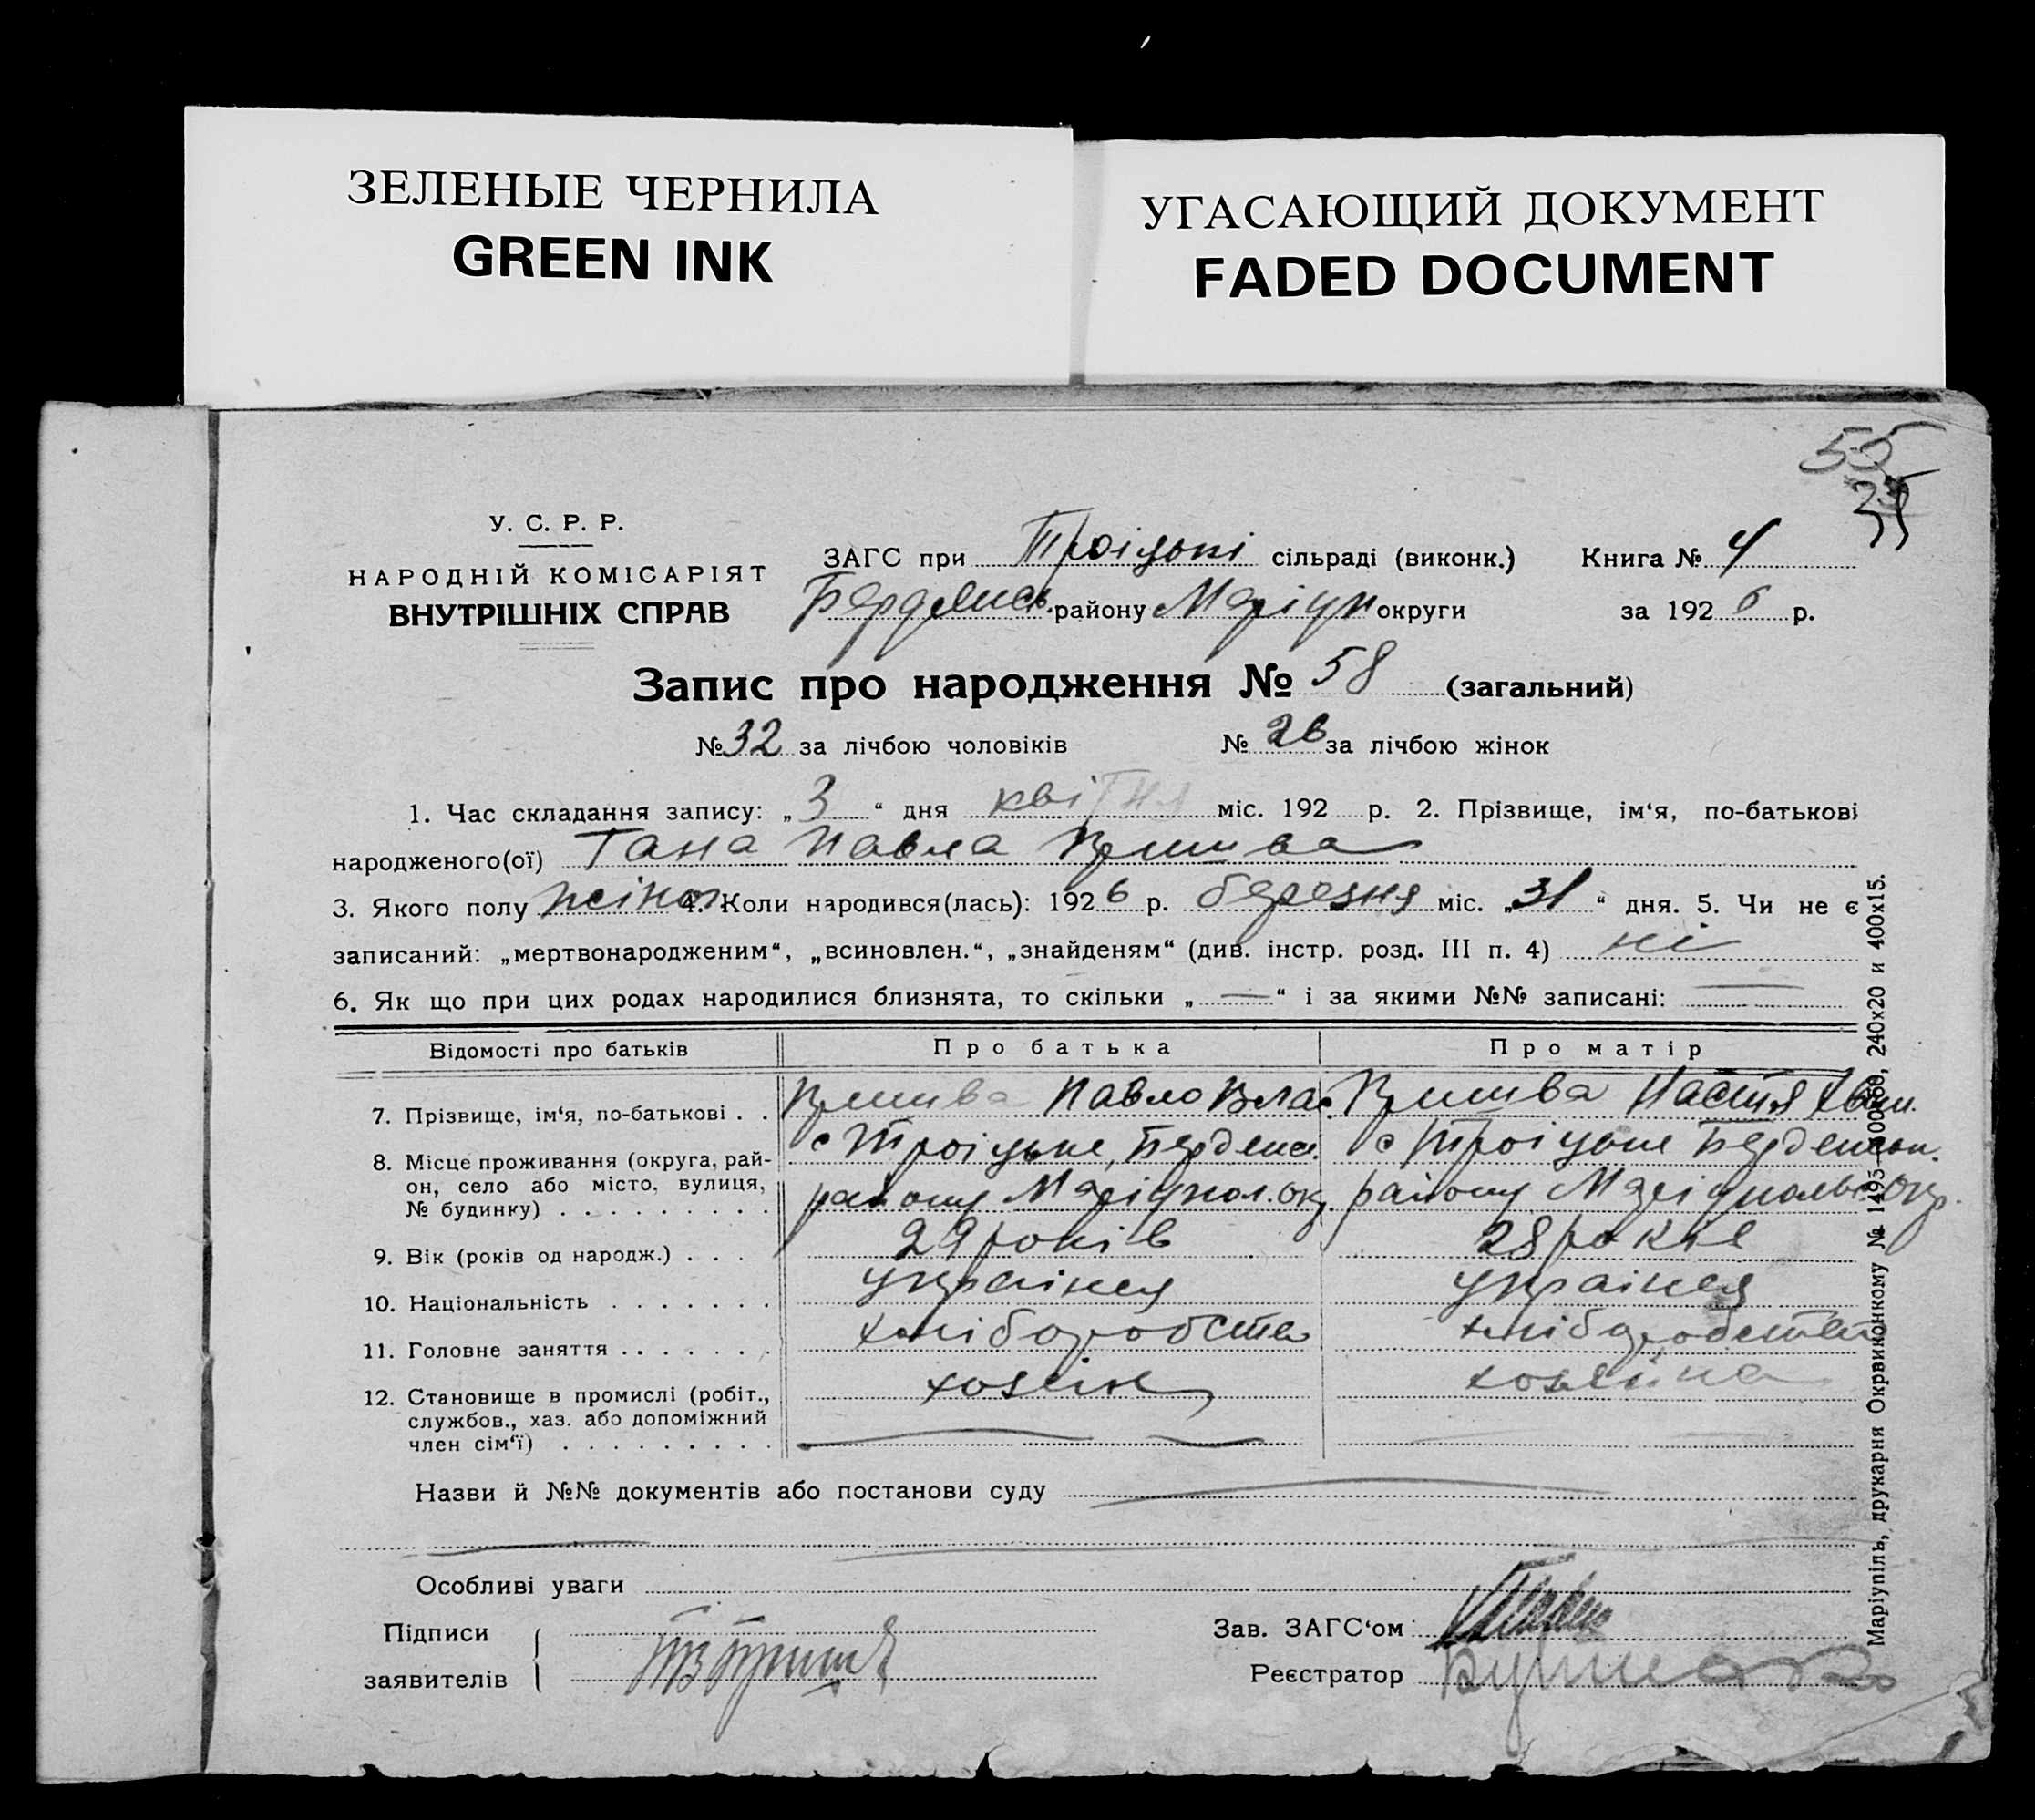 ЗЕЛЕНЫЕ ЧЕРНИЛА
GREEN INK
УГАСАЮЩИЙ ДОКУМЕНТ
FADED DOCUMENT
55
35
У. С. Р. Р.
НАРОДНІЙ КОМІСАРІЯТ
ВНУТРІШНІХ СПРАВ
ЗАГС при Троіцькі сільраді (виконк.) Книга № 4
Бердянськ. району Маріуп округи за 1926 р.
Запис про народження № 58 (загальний)
№ 32 за лічбою чоловіків № 26 за лічбою жінок
1. Час складання запису: „3“ дня квітня міс. 192 р. 2. Прізвище, ім‘я, по-батькові
народженого(ої) Гана Павла
3. Якого полу жіноч 4. Коли народився(лась): 1926 р. березня міс. „31“ дня. 5. Чи не є
записаний: „мертвонародженим“, „всиновлен.“, „знайденям“ (див. інстр. розд. III п. 4) ні
6. Як що при цих родах народилися близнята, то скільки „—“ і за якими №№ записані: —
Відомості про батьків Про батька Про матір
7. Прізвище, ім‘я, по-батькові . . Павло Влас. Настя
8. Місце проживання (округа, рай-
он, село або місто, вулиця,
№ будинку) . . . . . . . . .
с Троіцьке, Берденс.
району Маріупол. Окр.
с Троіцьке Берденськ.
району Маріупольс Окр.
9. Вік (років од народж.) . . . 29 років 28 років
10. Національність . . . . . . . українец україн
11. Головне заняття . . . . . . . хліборобство хліборобство
12. Становище в промислі (робіт.,
службов., хаз. або допоміжний
член сім‘ї) . . . . . . . . .
хозяін
хозяіна
Назви й №№ документів або постанови суду
Особливі уваги
Підписи
заявителів
Зав. ЗАГС‘ом
Реєстратор
Маріупіль, друкарня Окрвиконкому № 1493— 240x20 и 400x15.